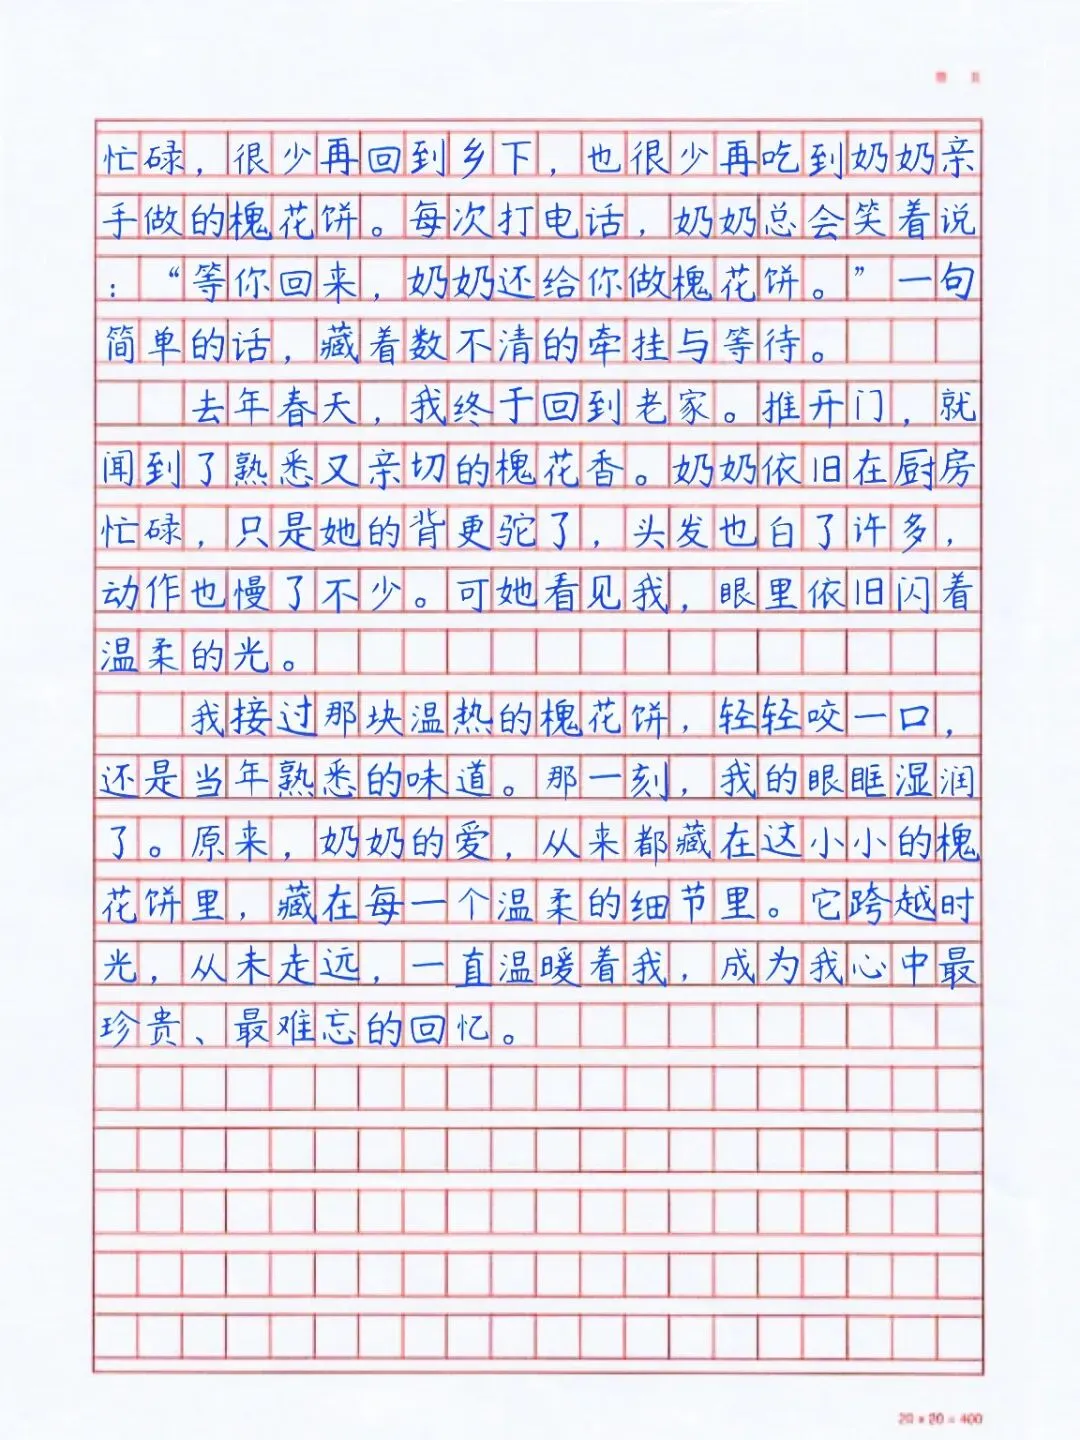 忙碌，很少再回到乡下，也很少再吃到奶奶亲
手做的槐花饼。每次打电话，奶奶总会笑着说
：“等你回来，奶奶还给你做槐花饼。”一句
简单的话，藏着数不清的牵挂与等待。
去年春天，我终于回到老家。推开门，就
闻到了熟悉又亲切的槐花香。奶奶依旧在厨房
忙碌，只是她的背更驼了，头发也白了许多，
动作也慢了不少。可她看见我，眼里依旧闪着
温柔的光。
我接过那块温热的槐花饼，轻轻咬一口，
还是当年熟悉的味道。那一刻，我的眼眶湿润
了。原来，奶奶的爱，从来都藏在这小小的槐
花饼里，藏在每一个温柔的细节里。它跨越时
光，从未走远，一直温暖着我，成为我心中最
珍贵、最难忘的回忆。
20×20=400